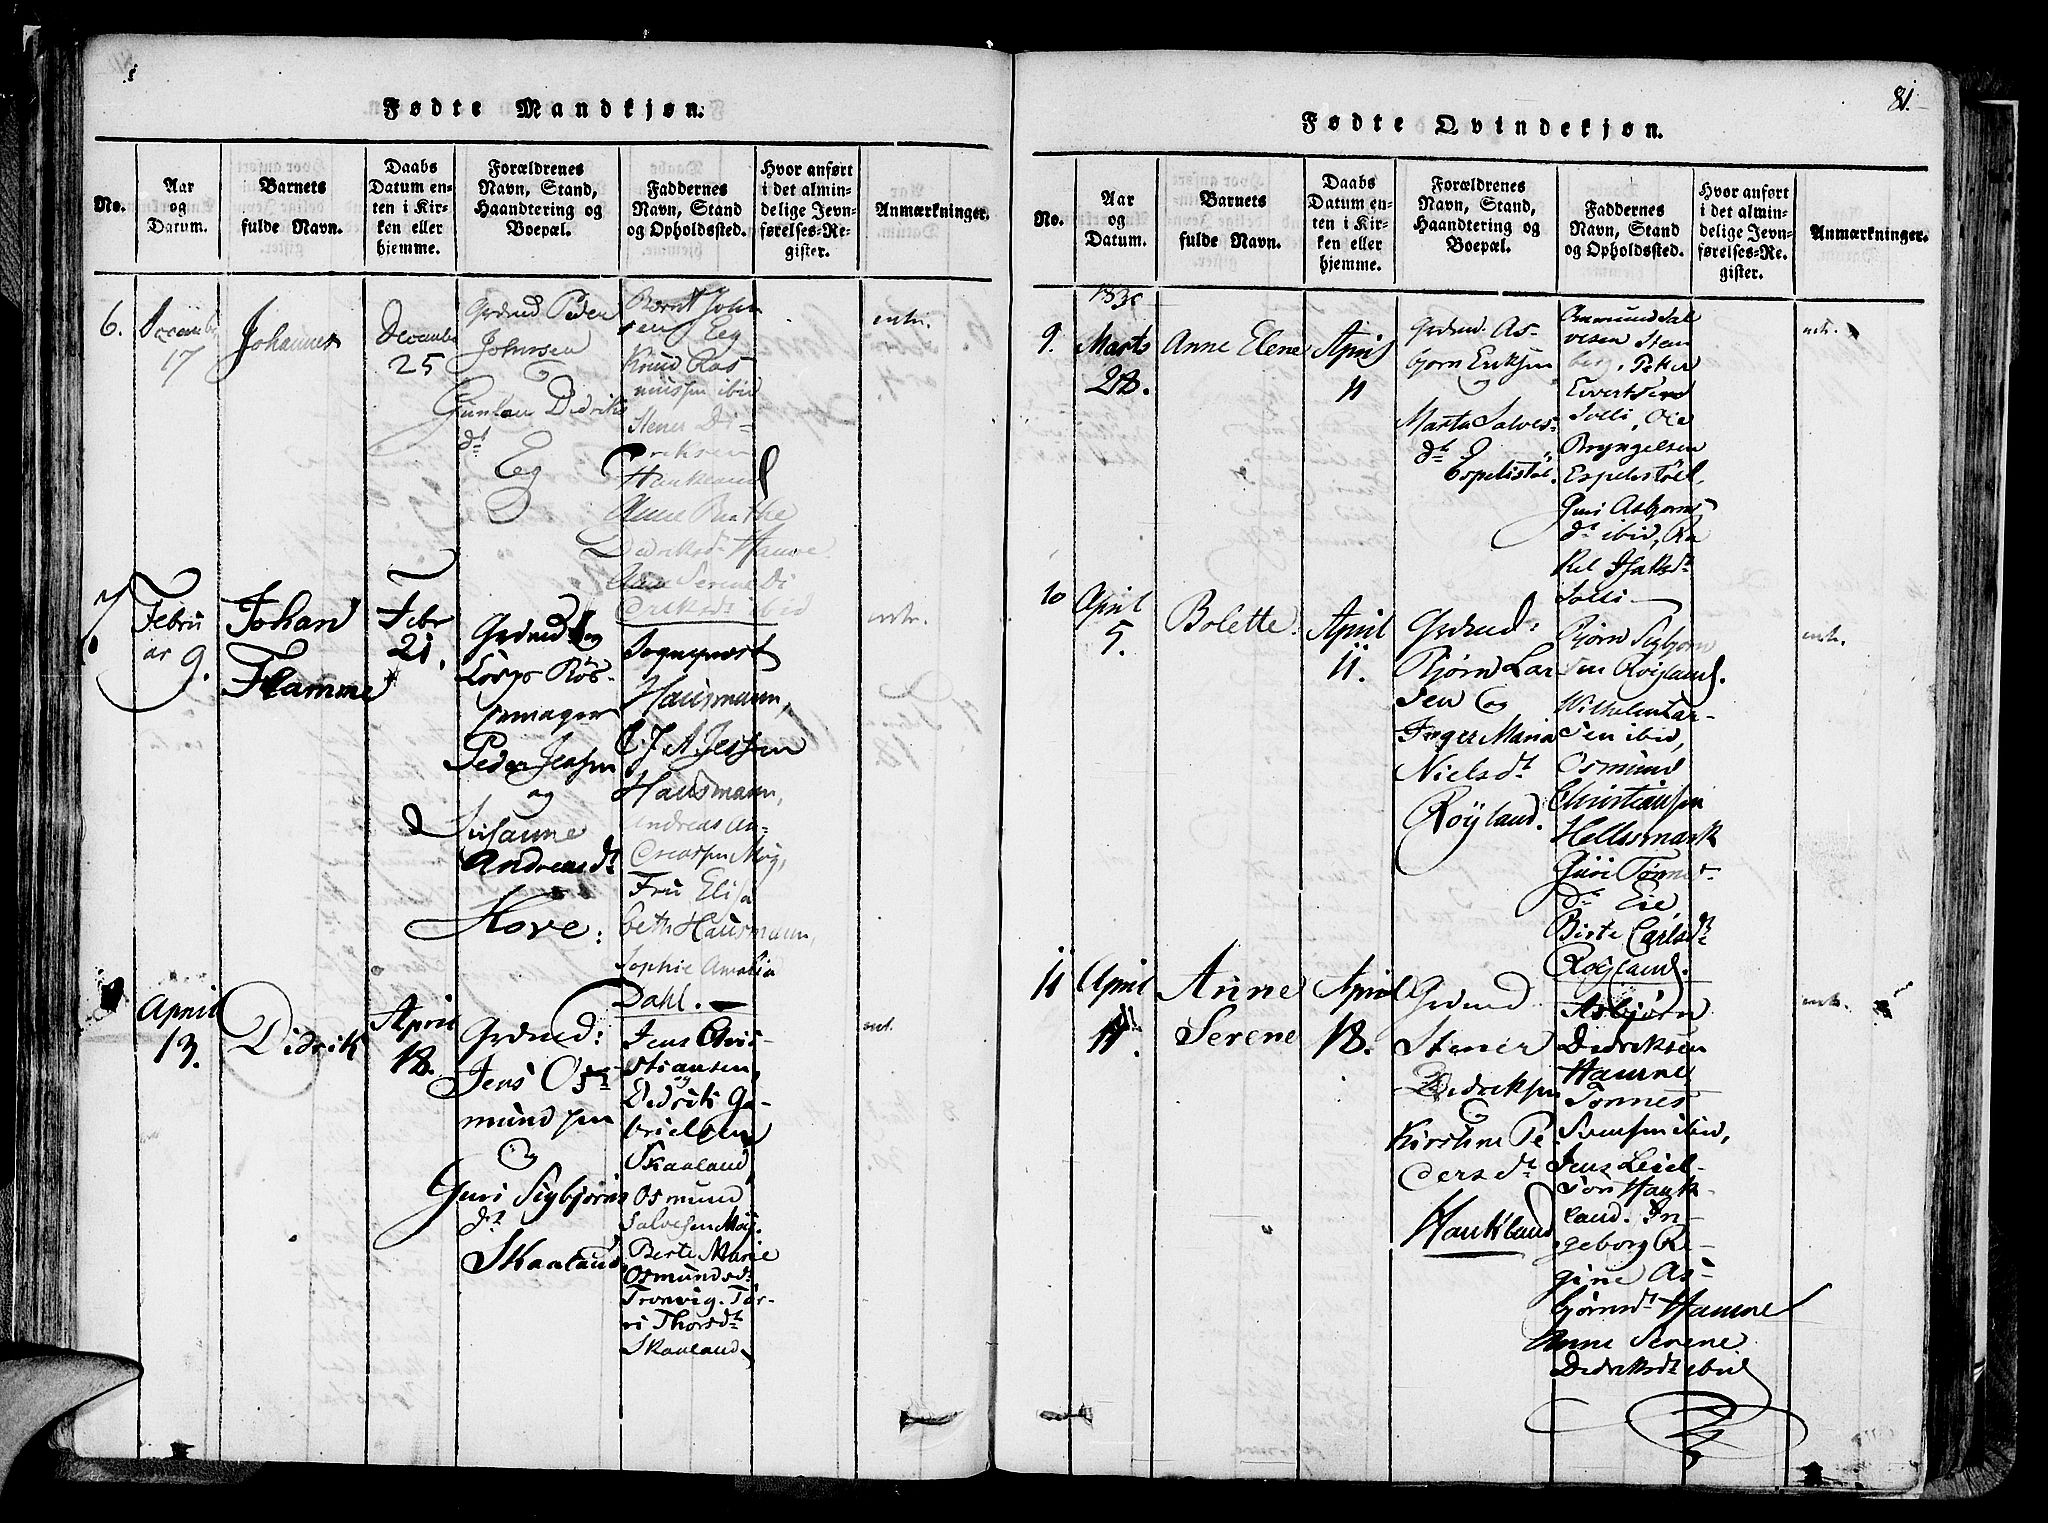 Fødte Mandkjøn.
No.
Aar
og
Datum.
Barnets
fulde Navn.
Daabs
Datum en-
ten i Kir-
ken eller
hjemme.
Forældrenes
Navn, Stand,
Haandtering og
Boepæl.
Faddernes
Navn, Stand
og Opholdssted.
Hvor anført
i det almin-
delige Jevn-
førelses-Re-
gister.
Anmærkninger.
6.
Decembr
17
Johannes
Decembr
25
Grdmd Peder
Johnsen
Gunlau Didriks
dt
Eeg
Bernt John
sen Eeg
Knud Ras
mussen ibid
Stener Di-
driksen
Haukland
Anne Birthe
Didriksdt Hamre
Ane Serene Di
driksdt ibid
entr.
7.
Febru
ar 9.
Johan
Flamme
Febr
21.
Grdmd og
Corps Rös-
temager
Peder Jensen
og
Susanne
Andreasdt
Hove:
Sognepræst
Hausmann,
C J A Jessen
Hausmann,
Andreas An-
dreassen Møg,
Fru Elisa
beth Hausmann,
Sophie Amalia
Dahl.
entr.
8
April
13.
Didrik
April
18.
Grdmd:
Jens Os-
mundsen
og
Guri Sigbjørns
dt
Skaaland
Jens Chri-
stiansen
og
Didrik Ga-
brielsen
Skaaland,
Osmund
Salvesen Møg.
Berte Marie
Osmundsdt
Tronvig. Tor-
ri Thorsdt
Skaaland
ent.
81.
Fødte Qvindekjøn.
No.
Aar
og
Datum.
Barnets
fulde Navn.
Daabs
Datum en-
ten i Kir-
ken eller
hjemme.
Forældrenes
Navn, Stand,
Haandtering og
Boepæl.
Faddernes
Navn, Stand
og Opholdssted.
Hvor anført
i det almin-
delige Jevn-
førelses-Re-
gister.
Anmærkninger.
9.
Marts
28.
Anne Elene
April
11
Grdmd. As-
bjørn Eriksen
Marta Salves-
dt
Espelistøl.
Aamund Sal
vesen Sten
berg, Peter
Evertsen
Solli, Ole
Bryngelsen
Espelistøl,
Guri Asbjørns
dt ibid, Ra
kel Isaksdt
Solli
entr.
10
April
5.
Bolette.
April
11.
Grdmd:
Bjørn Lar
sen og
Inger Maria
Nielsdt
Röyland.
Bjørn Sigbjørn
sen Röyland.
Wilhelm Lar-
sen ibid,
Osmund
Christiansen
Hellesmark
Guri Tønnes-
dt Eie
Birte Carlsdt
Röyland.
entr.
11
April
11.
Anne
Serene
April
18.
Grdmd
Stener
Didriksen
og
Kirstine Pe
dersdt
Haukland
Asbjørn
Didriksen
Hamre,
Tønnes
Svensen ibid,
Jens Leiel-
son Hauk-
land. In-
geborg Re-
gine As-
bjørnsdt Hamre
Anne Serene
Didriksdt ibid
entr.